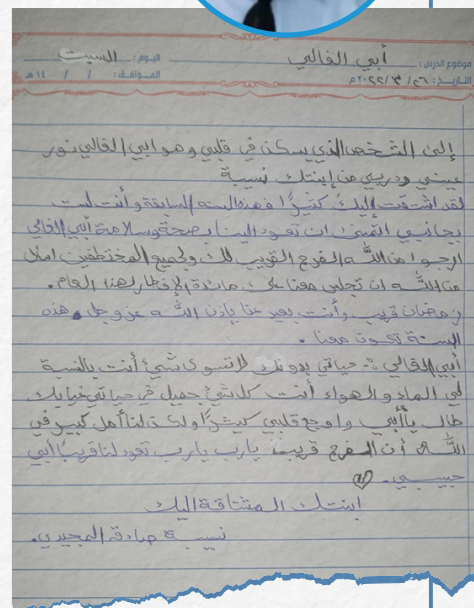 موضوع الدرس: أبي الغالي اليوم: السبت
التاريخ: ٢٦/٣/٢٠٢٢م الموافق: / / ١٤هـ
إلى الشخص الذي يسكن في قلبي وهو ابي الغالي نور
عيني ودربي من إبنتك نسيبة
لقد اشتقت إليك كثيرًا وهذه السنه السابعة وأنت لست
بجانبي اتمنى ان تعود الينا بصحة وسلامة أبي الغالي
ارجوا من الله الفرج القريب لك ولجميع المختطفين املي
من الله ان تجلس معنا على مائدة الإفطار لهذا العام.
رمضان قريب وأنت بعيد عنا بإذن الله عز وجل هذه
السنة تكون معنا.
أبي الغالي :- حياتي بدونك لاتسوى شيئ أنت بالنسبة
لي الماء والهواء أنت كل شيئ جميل في حياتي غيابك
طال ياأبي واوجع قلبي كثيرًا ولكن لنا أمل كبير في
الله أن الفرج قريب يارب يارب تعود لنا قريبًا أبي
حبيبي.
ابنتك المشتاقة اليك
نسيبة صادق المجيدي.